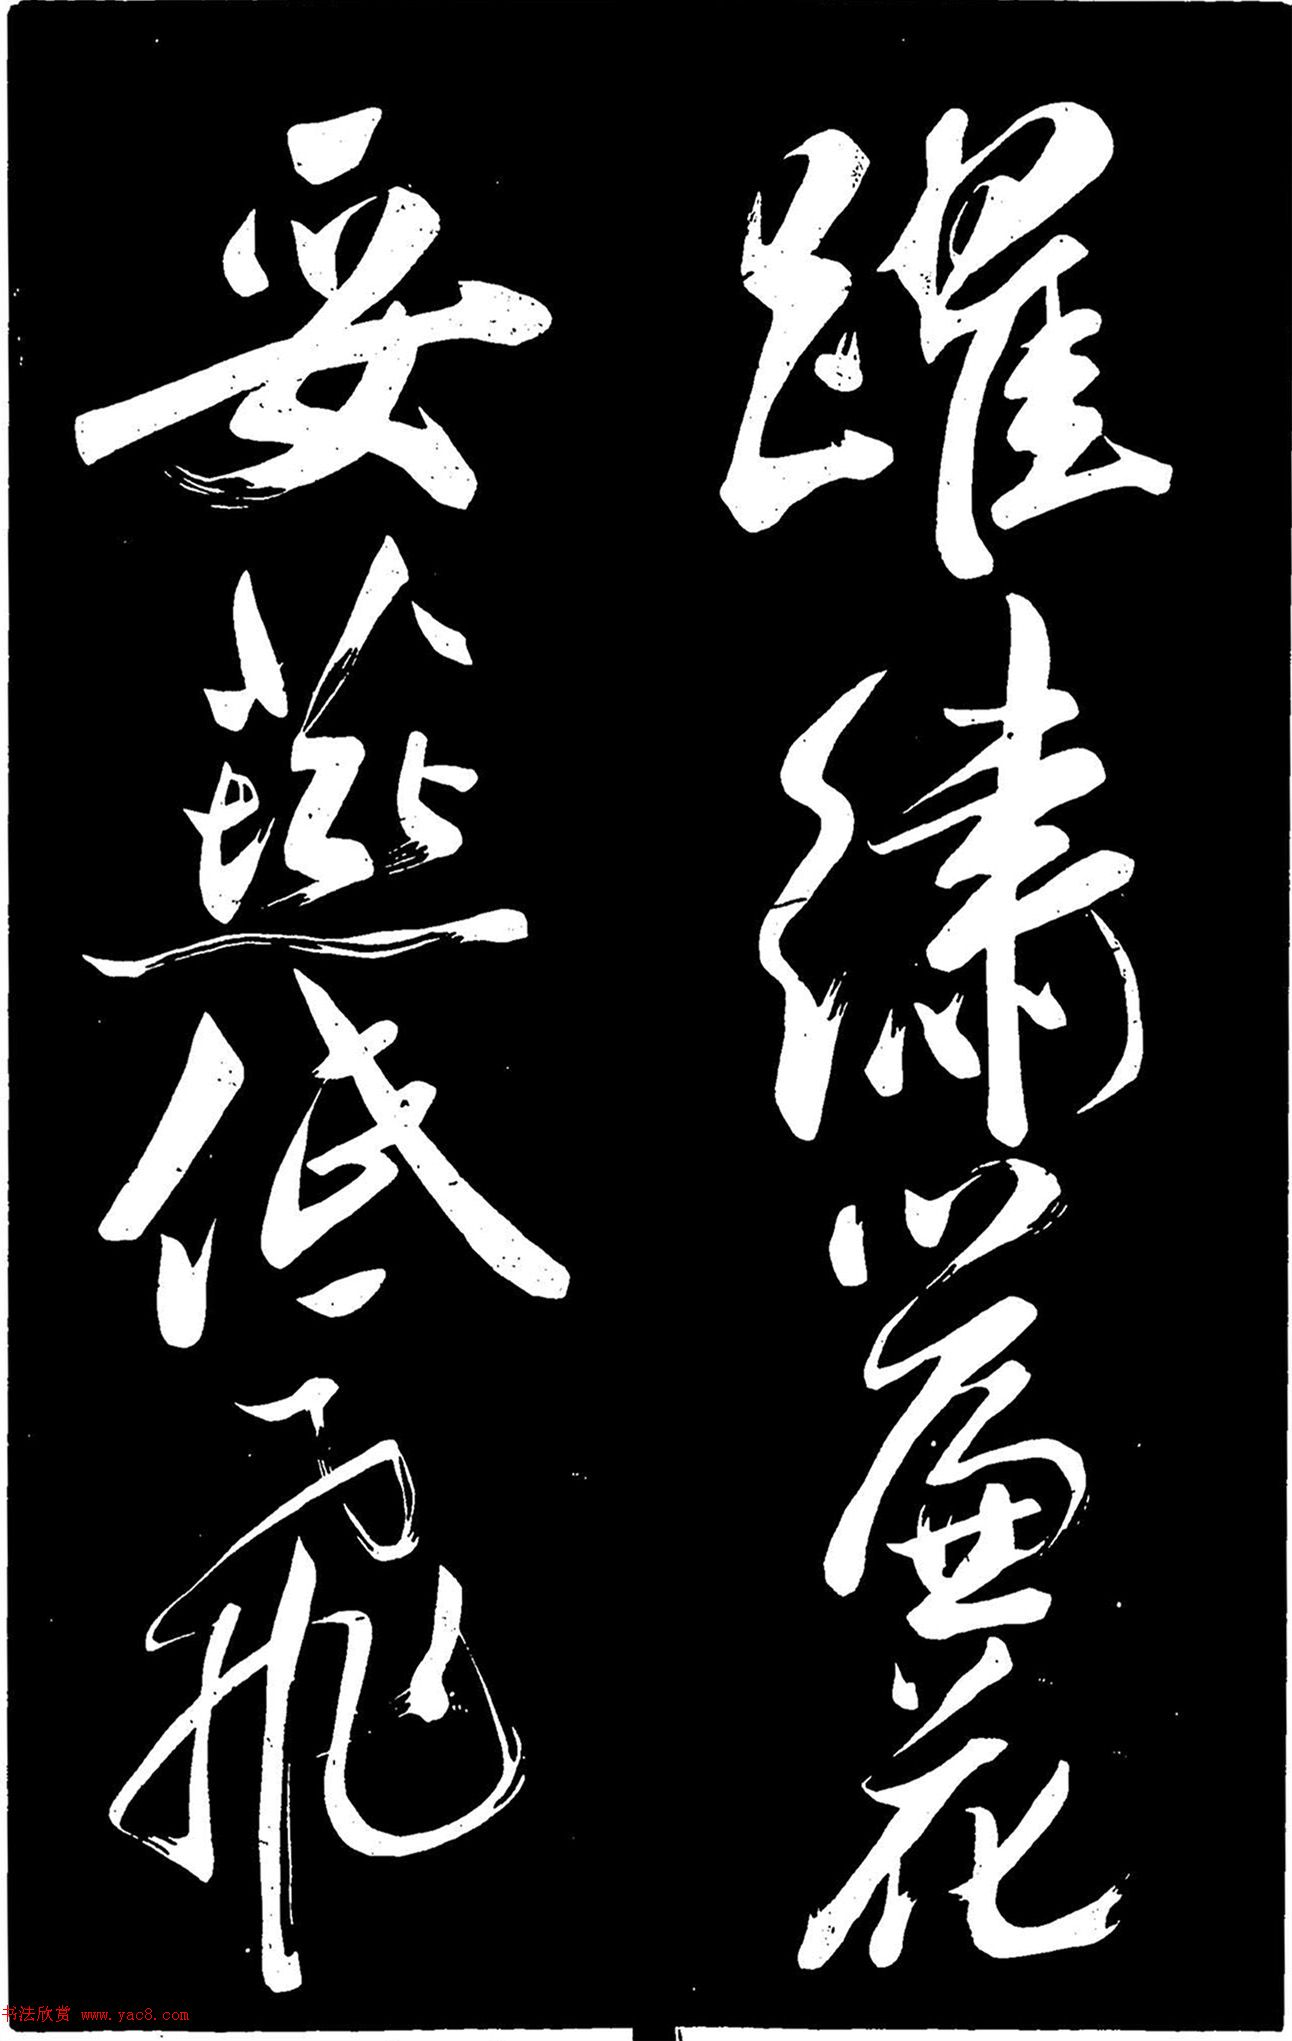 躍繡簾花
妥燕低飛
书法欣赏 www.yac8.com